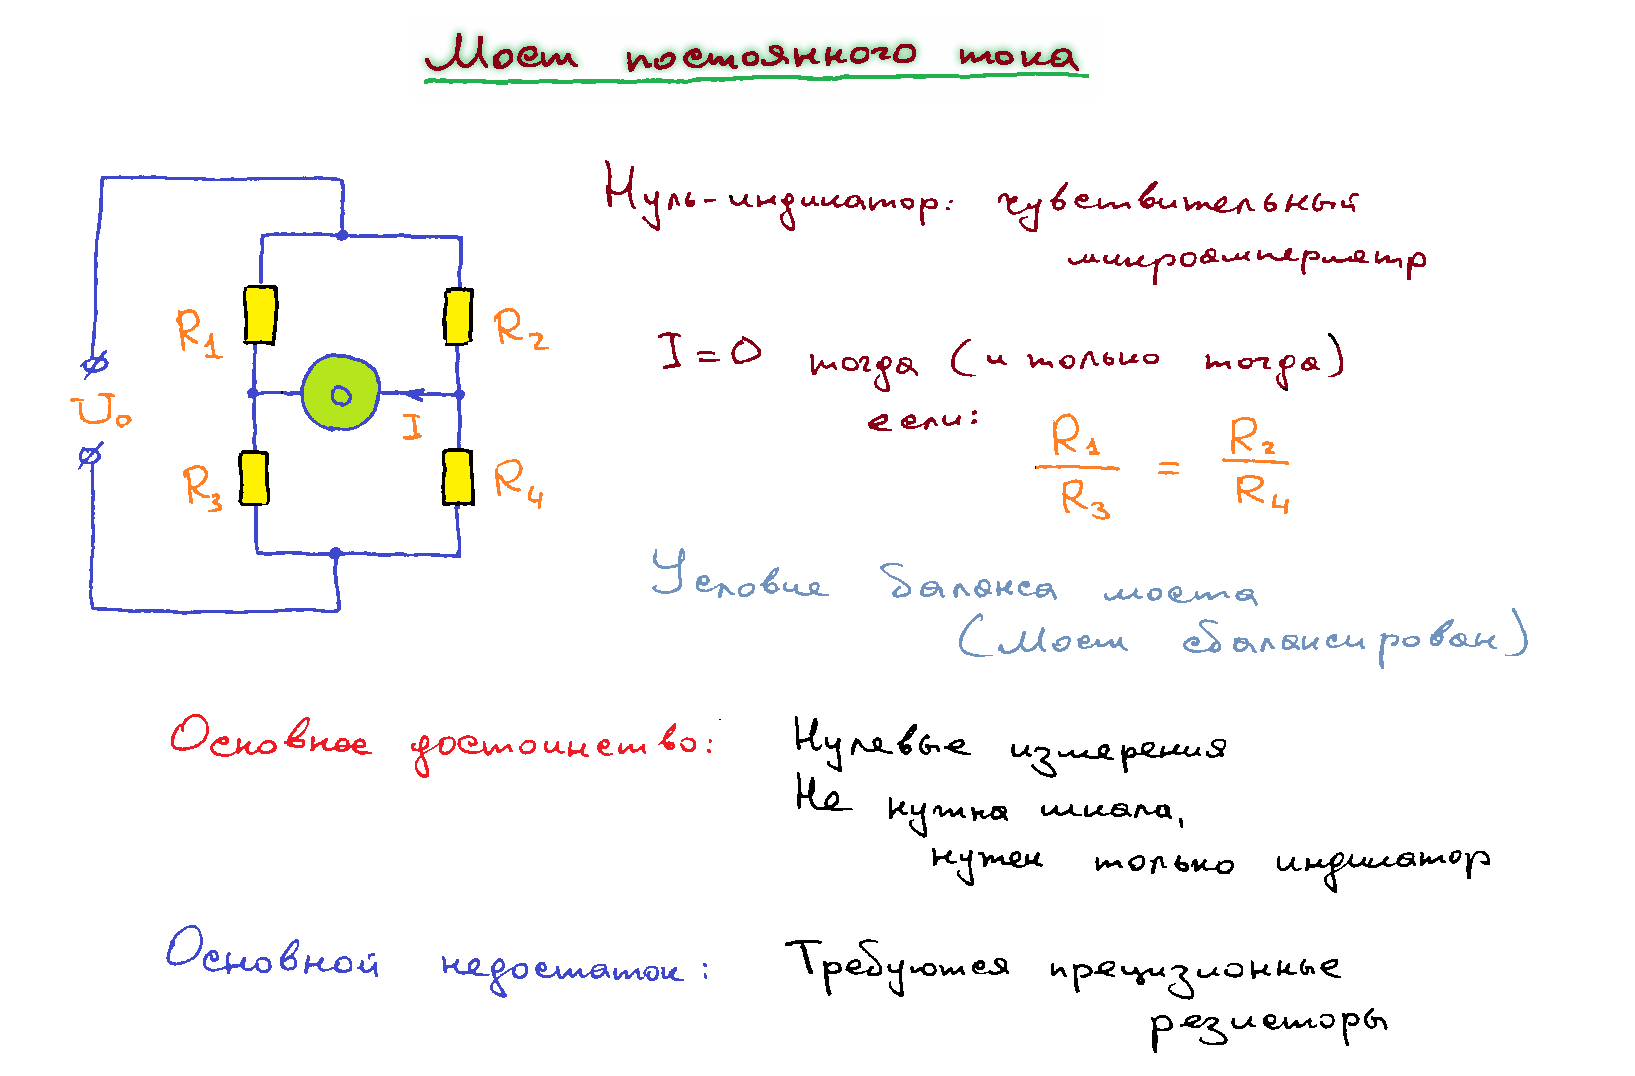 Мост постоянного тока
Нуль-индикатор: чувствительный
микроамперметр
R1
R2
I = 0 тогда (и только тогда)
U0
0
I
если:
R1/R3 = R2/R4
R3
R4
Условие баланса моста
(Мост сбалансирован)
Основное достоинство: Нулевые измерения
Не нужна шкала,
нужен только индикатор
Основной недостаток: Требуются прецизионные
резисторы